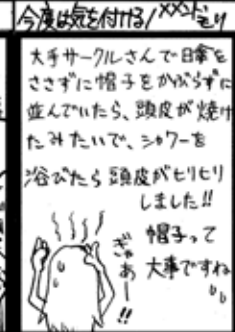 今度は気を付ける/
大手サークルさんで日傘を
ささずに帽子をかぶらずに
並んでいたら、頭皮が焼け
たみたいで、シャワーを
浴びたら頭皮がヒリヒリ
しました!!
帽子って
大事ですね
ぎゃあー!!